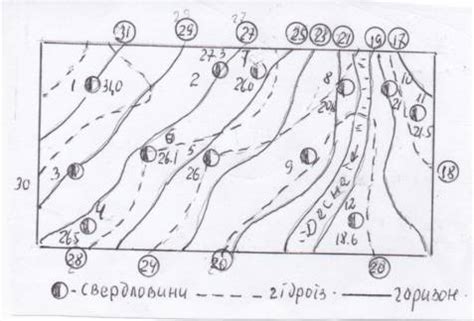 29 27
31 29 27 25 23 21 19 17
27.3 7 8 10
1 31,0 2 26.0 20. 21. 11
21.5
6 5
3 26.1 26 9 18
30
4 12
26.5 Десна 18.6
28 24 20 20
- свердловини --- гідроіз. — горизон.